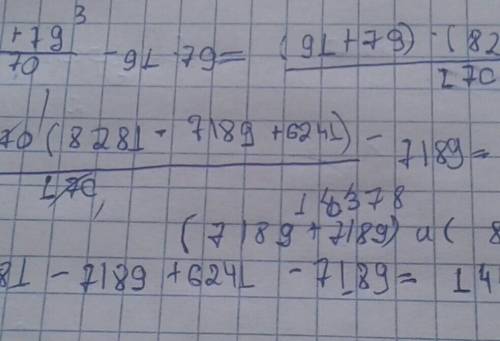 +79³/70 - 91·79 = (91+79)·(82/170
170(8281 - 7189 + 6241)/170 - 7189 =
14378
(7189+7189) и (8
81 - 7189 + 6241 - 7189 = 14